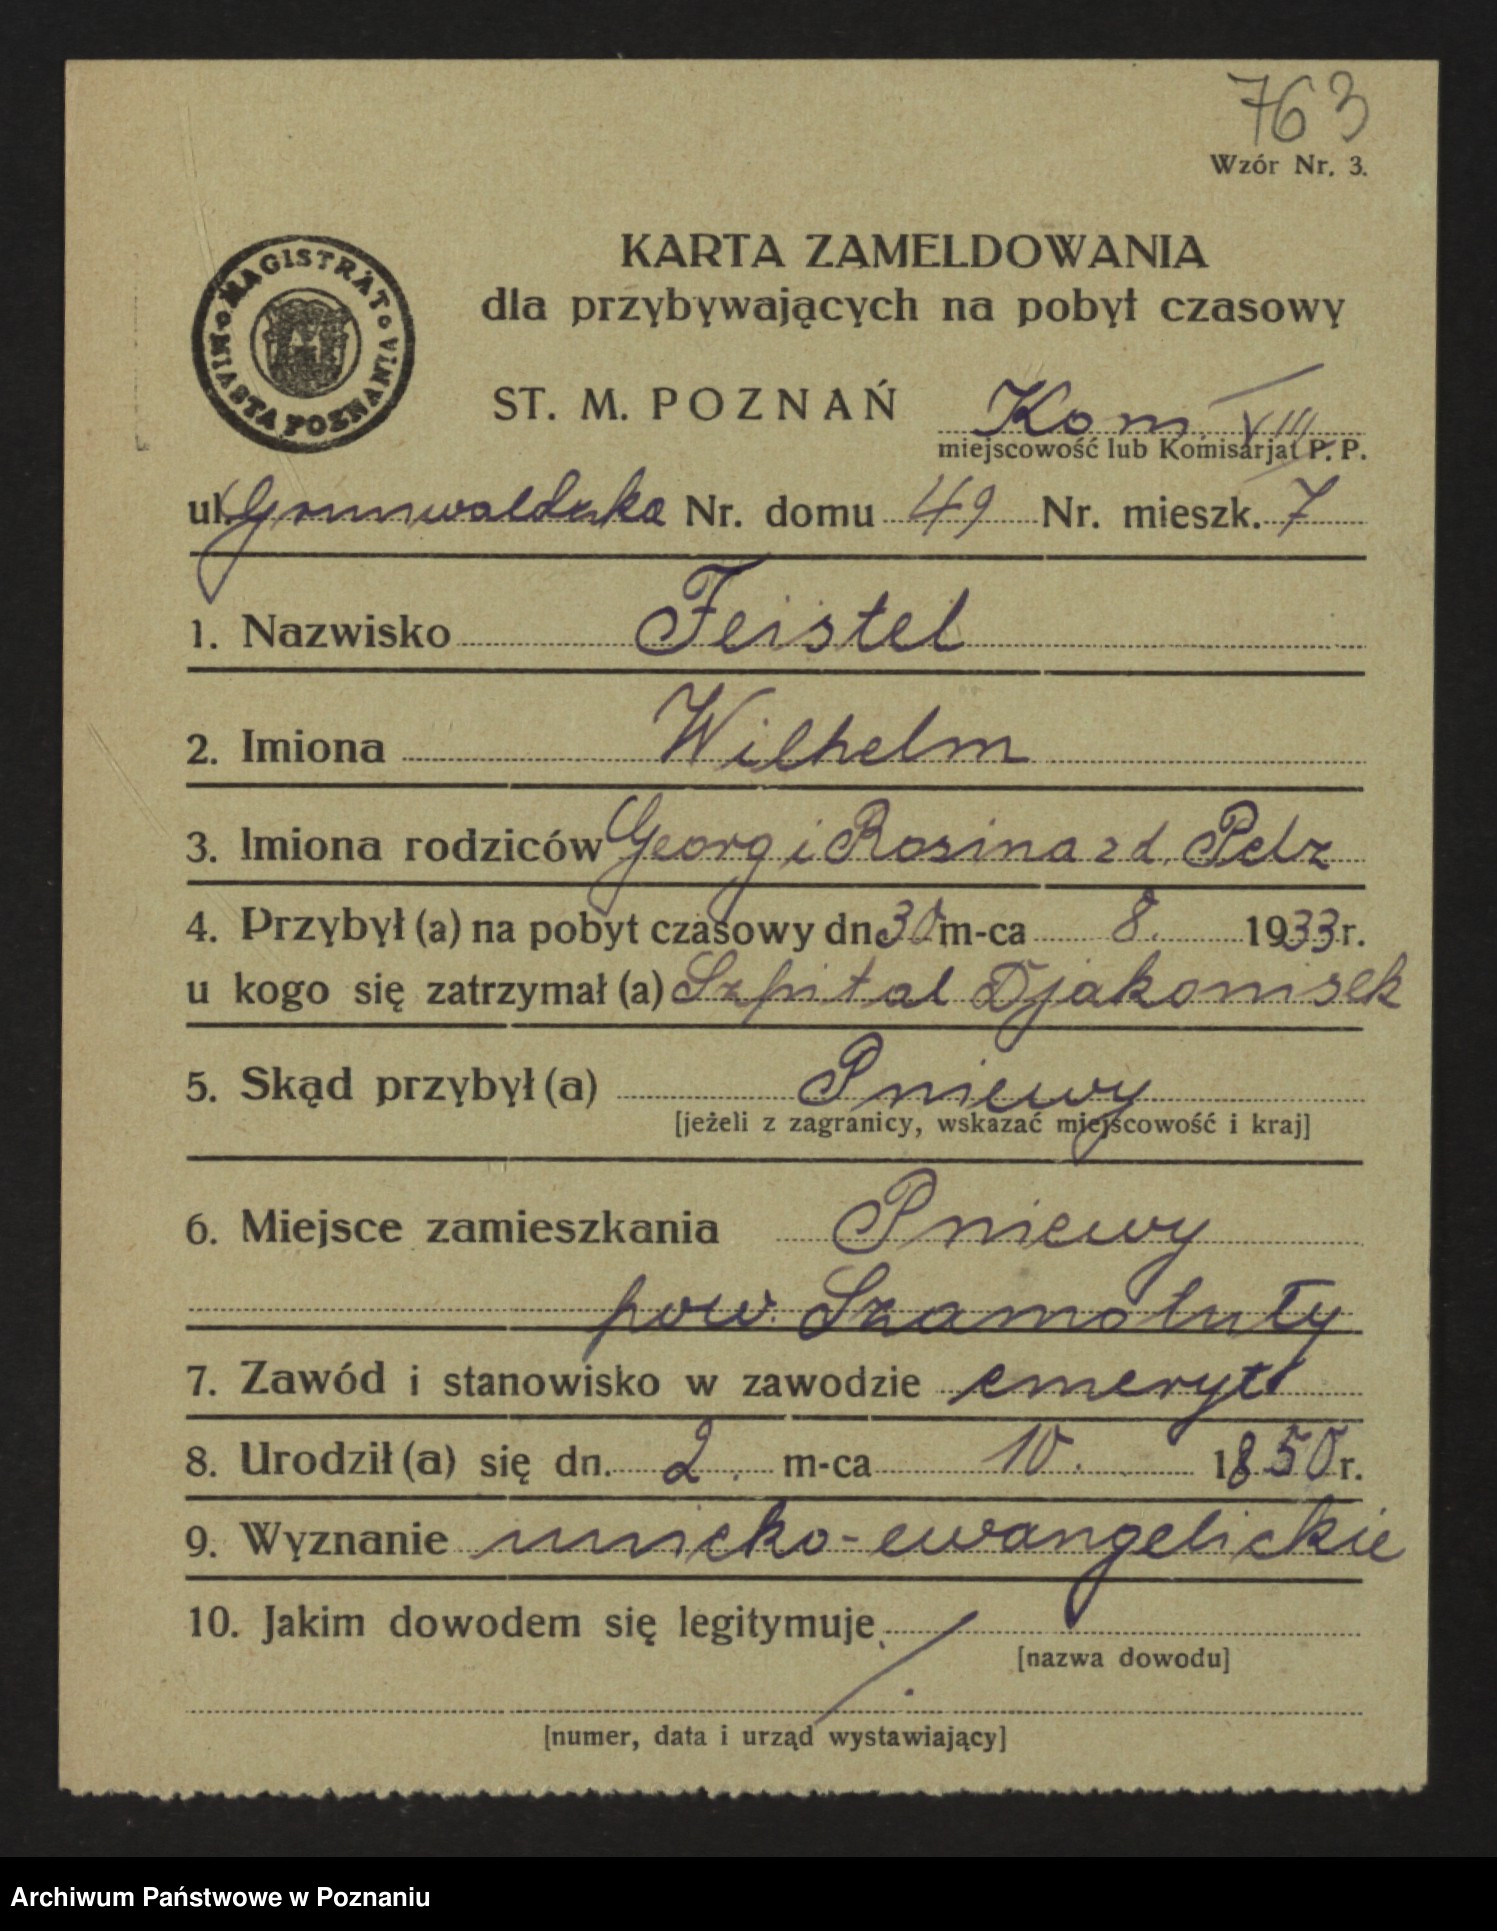 763
Wzór Nr. 3.
MAGISTRAT MIASTA POZNANIA
KARTA ZAMELDOWANIA
dla przybywających na pobyt czasowy
ST. M. POZNAŃ Kom. VIII
miejscowość lub Komisarjat P. P.
ul. Grunwaldzka Nr. domu 49 Nr. mieszk. 7
1. Nazwisko Feistel
2. Imiona Wilhelm
3. Imiona rodziców Georg i Rosina z d. Pelz
4. Przybył (a) na pobyt czasowy dn. 30 m-ca 8. 1933 r.
u kogo się zatrzymał (a) Szpital Djakonisek
5. Skąd przybył (a) Pniewy
[jeżeli z zagranicy, wskazać miejscowość i kraj]
6. Miejsce zamieszkania Pniewy
pow. Szamotuły
7. Zawód i stanowisko w zawodzie emeryt
8. Urodził (a) się dn. 2. m-ca 10. 1850 r.
9. Wyznanie unicko-ewangelickie
10. Jakim dowodem się legitymuje
[nazwa dowodu]
[numer, data i urząd wystawiający]
Archiwum Państwowe w Poznaniu